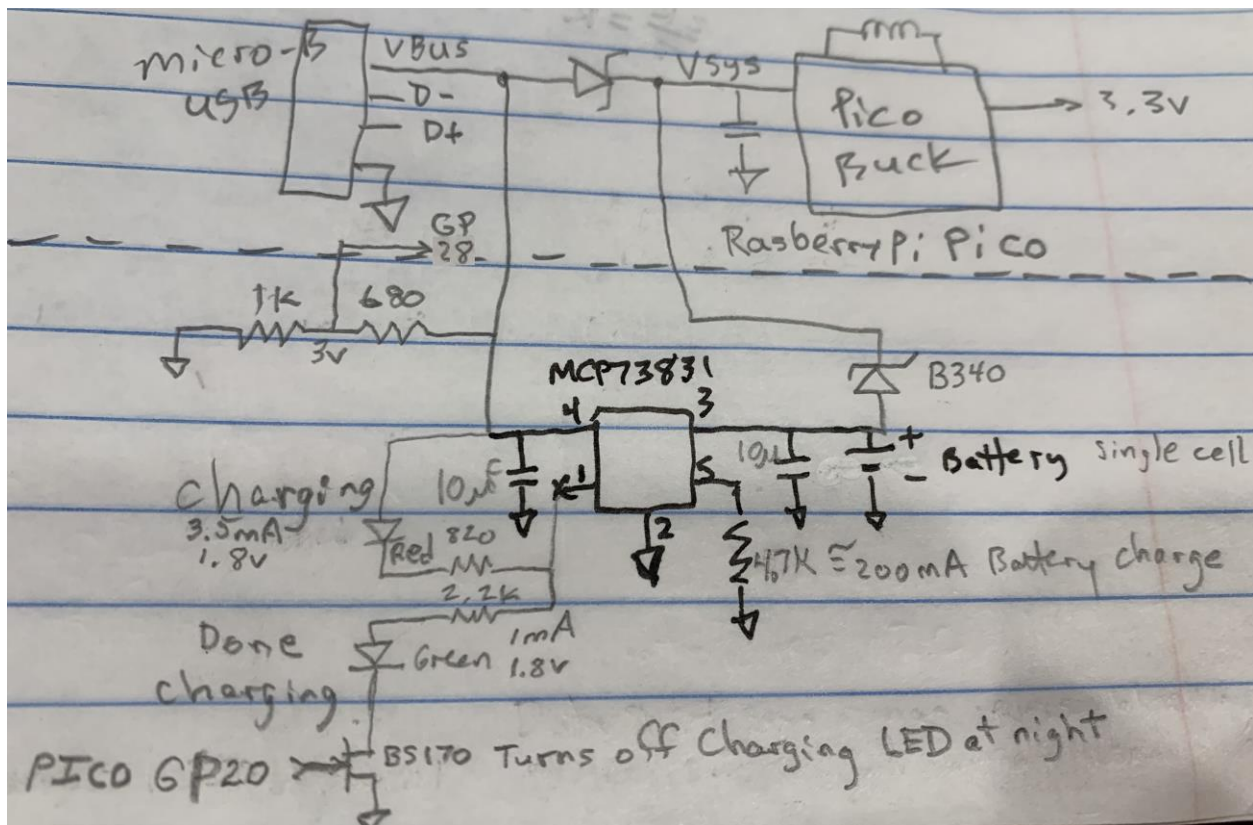 micro-B
USB
VBus
D-
D+
Vsys
Pico
Buck
3.3v
Rasberry Pi Pico
GP
28
1K
680
3v
MCP73831
4
3
1
5
2
B340
10µF
10µ
+
-
Battery single cell
Charging
3.5mA
1.8v
Red
820
4.7K ≈ 200mA Battery charge
2.2K
1mA
Done
charging
Green
1.8v
PICO GP20
BS170
Turns off Charging LED at night